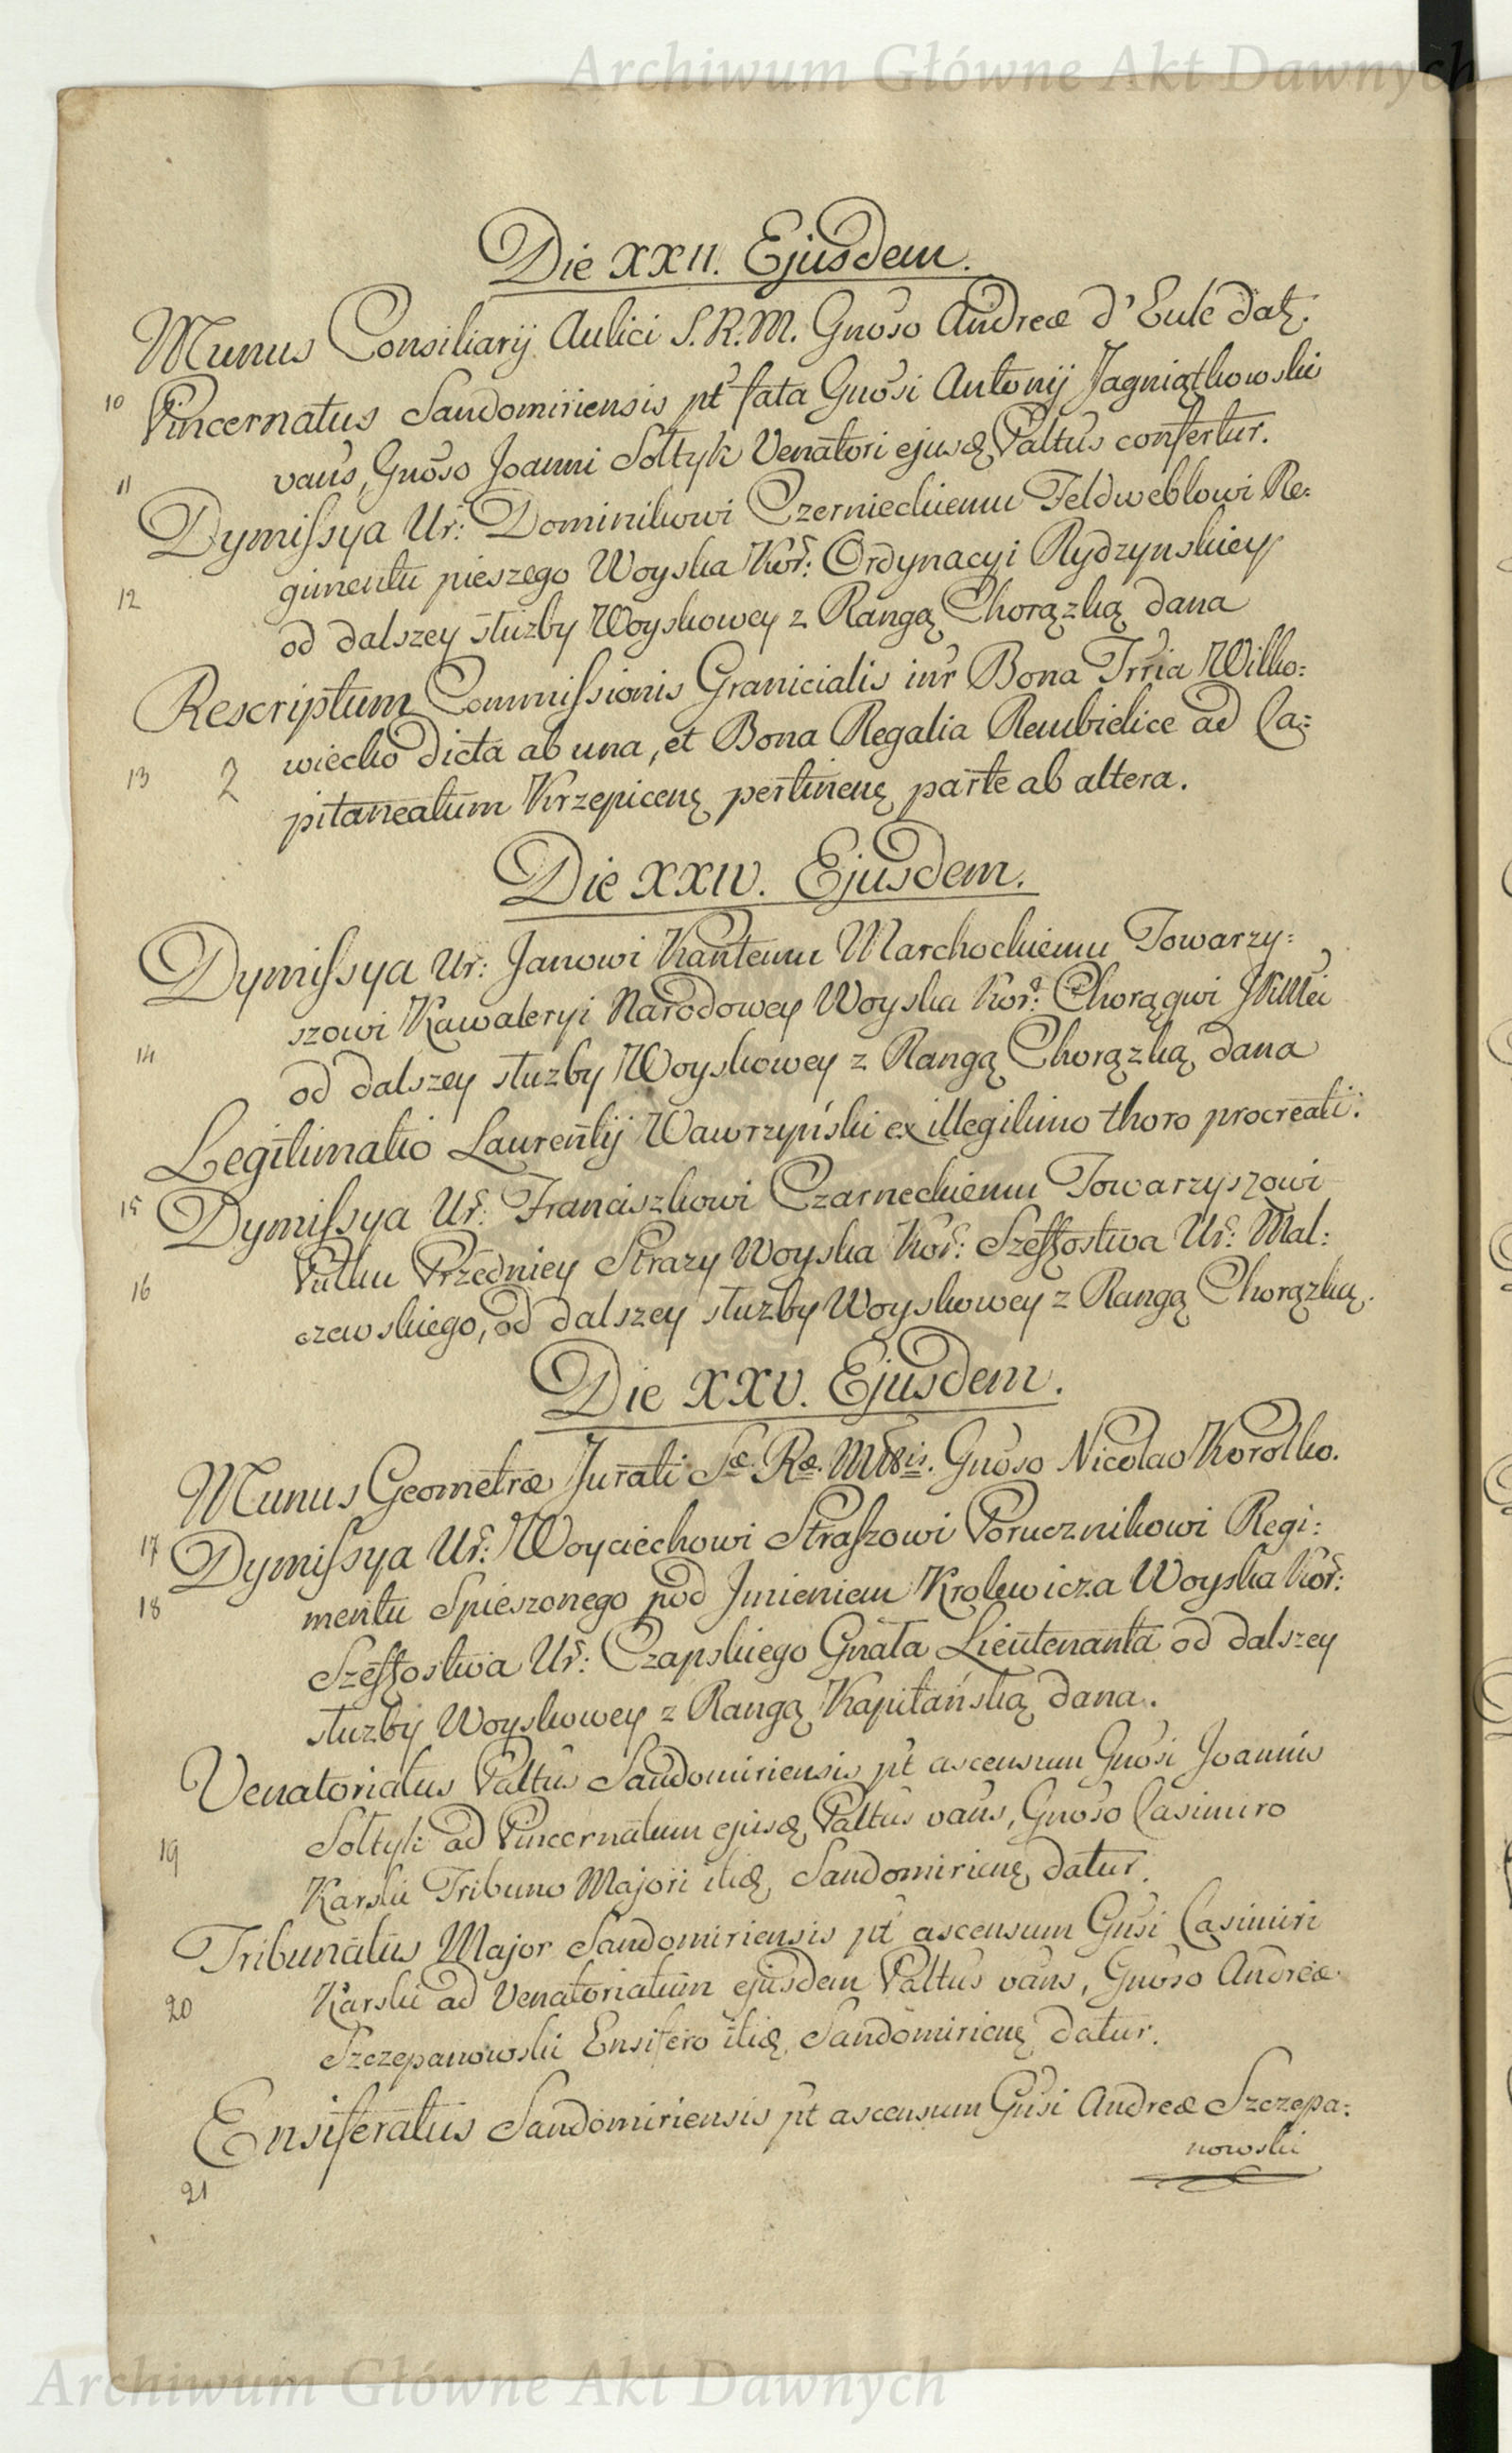 Archiwum Główne Akt Dawnych
Die XXII. Ejusdem.
Munus Consiliarij Aulici S.R.M. Gnōso Andreæ d'Eule datȝ.
10 Pincernatus Sandomiriensis pt fata Gnōsi Antonij Jagniątkowski
vans, Gnōso Joanni Sołtyk Venatori ejusdȝ Paltus confertur.
11
Dymissya Ur: Dominikowi Czernieckiemu Feldweblowi Re:
gimentu pieszego Woyska Kor: Ordynacyi Rydzynskiey
12
od dalszey służby Woyskowey z Rangą Chorązką dana
Rescriptum Commissionis Granicialis inr Bona Trria Wilko:
wiecko dicta ab una, et Bona Regalia Rembielice ad Ca:
13 2
pitaneatum Krzepicenȩ pertinenȩ parte ab altera.
Die XXIV. Ejusdem.
Dymissya Ur: Janowi Kantemu Marchockiemu Towarzy:
szowi Kawaleryi Narodowey Woyska Kor: Chorągwi JKMci
14
od dalszey służby Woyskowey z Rangą Chorązką dana
Legitimatio Laurentij Wawrzyński ex illegitimo thoro procreati.
15 Dymissya Ur: Franciszkowi Czarneckiemu Towarzyszowi
Pułku Przedniey Strazy Woyska Kor: Szeffostwa Ur: Mal:
16
czewskiego, od dalszey służby Woyskowey z Rangą Chorązką.
Die XXV. Ejusdem.
Munus Geometræ Jurati Sæ. Ræ. Mttis. Gnōso Nicolao Korolko.
17 Dymissya Ur: Woyciechowi Straszowi Porucznikowi Regi:
18 mentu Spieszonego pod Jmieniem Krolewicza Woyska Kor:
Szeffostwa Ur: Czapskiego Gnała Lieutenanta od dalszey
służby Woyskowey z Rangą Kapitańską dana.
Venatoriatus Paltus Sandomiriensis pt ascensum Gnōsi Joannis
Sołtyk ad Pincernatum ejusdȝ Paltus vans, Gnōso Casimiro
19
Karski Tribuno Majori itidȝ Sandomirienȩ datur.
Tribunatus Major Sandomiriensis pt ascensum Gnsi Casimiri
Karski ad Venatoriatum ejusdem Paltus vans, Gnoso Andreæ
20
Szczepanowski Ensifero itidȝ Sandomirienȩ datur.
Ensiferatus Sandomiriensis pt ascensum Gnsi Andreæ Szczepa:
nowski
21
Archiwum Główne Akt Dawnych